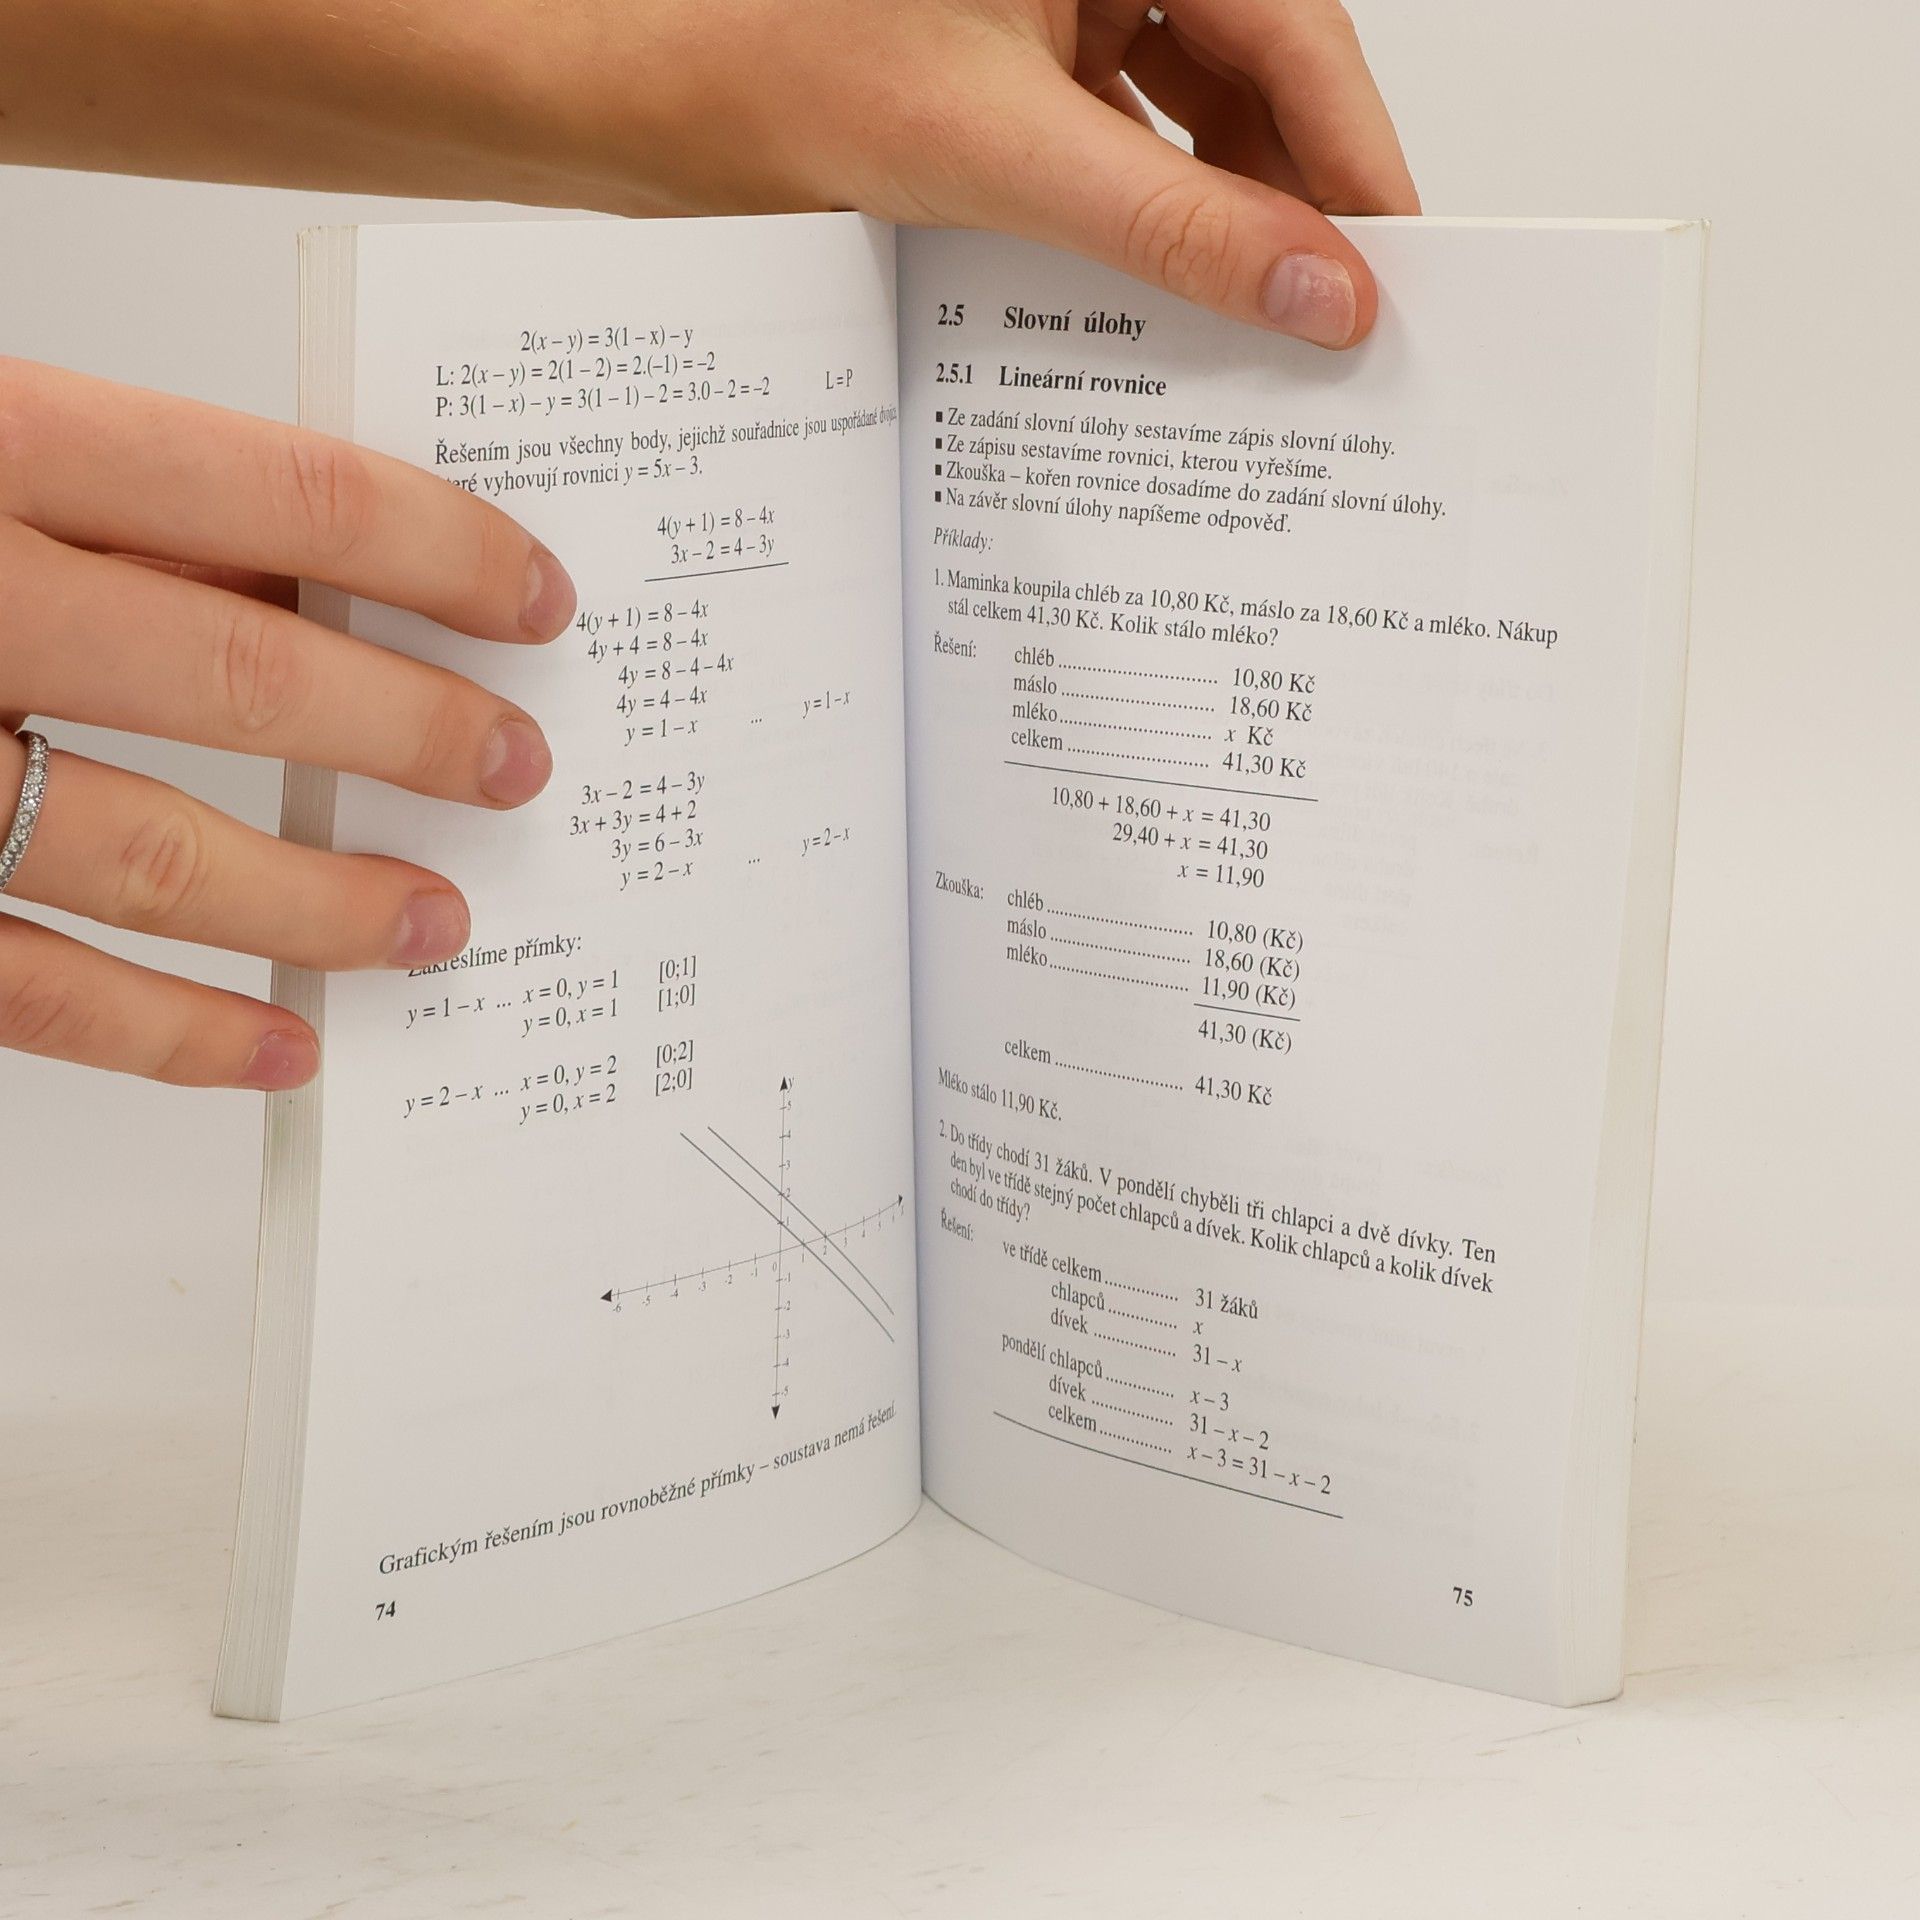 2(x – y) = 3(1 – x) – y
L: 2(x – y) = 2(1 – 2) = 2.(–1) = –2
P: 3(1 – x) – y = 3(1 – 1) – 2 = 3.0 – 2 = –2 L = P
Řešením jsou všechny body, jejichž souřadnice jsou uspořádané
vyhovují rovnici y = 5x – 3.
4(y + 1) = 8 – 4x
3x – 2 = 4 – 3y
4(y + 1) = 8 – 4x
4y + 4 = 8 – 4x
4y = 8 – 4 – 4x
4y = 4 – 4x
y = 1 – x ... y = 1 – x
3x – 2 = 4 – 3y
3x + 3y = 4 + 2
3y = 6 – 3x
y = 2 – x ... y = 2 – x
Zakreslíme přímky:
y = 1 – x ... x = 0, y = 1 [0;1]
y = 0, x = 1 [1;0]
y = 2 – x ... x = 0, y = 2 [0;2]
y = 0, x = 2 [2;0]
y
5
4
3
2
1
-6 -5 -4 -3 -2 -1 0 1 2 3 4 5
-1
-2
-3
-4
-5
Grafickým řešením jsou rovnoběžné přímky – soustava nemá řešení.
74
2.5 Slovní úlohy
2.5.1 Lineární rovnice
▪ Ze zadání slovní úlohy sestavíme zápis slovní úlohy.
▪ Ze zápisu sestavíme rovnici, kterou vyřešíme.
▪ Zkouška – kořen rovnice dosadíme do zadání slovní úlohy.
▪ Na závěr slovní úlohy napíšeme odpověď.
Příklady:
1. Maminka koupila chléb za 10,80 Kč, máslo za 18,60 Kč a mléko. Nákup
stál celkem 41,30 Kč. Kolik stálo mléko?
Řešení: chléb ........................... 10,80 Kč
máslo .......................... 18,60 Kč
mléko.......................... x Kč
celkem ........................ 41,30 Kč
10,80 + 18,60 + x = 41,30
29,40 + x = 41,30
x = 11,90
Zkouška: chléb ......................... 10,80 (Kč)
máslo ........................ 18,60 (Kč)
mléko........................ 11,90 (Kč)
41,30 (Kč)
celkem ...................... 41,30 Kč
Mléko stálo 11,90 Kč.
2. Do třídy chodí 31 žáků. V pondělí chyběli tři chlapci a dvě dívky. Ten
den byl ve třídě stejný počet chlapců a dívek. Kolik chlapců a kolik dívek
chodí do třídy?
Řešení: ve třídě celkem ............. 31 žáků
chlapců ............ x
dívek .............. 31 – x
pondělí chlapců ............ x – 3
dívek .............. 31 – x – 2
celkem............. x – 3 = 31 – x – 2
75